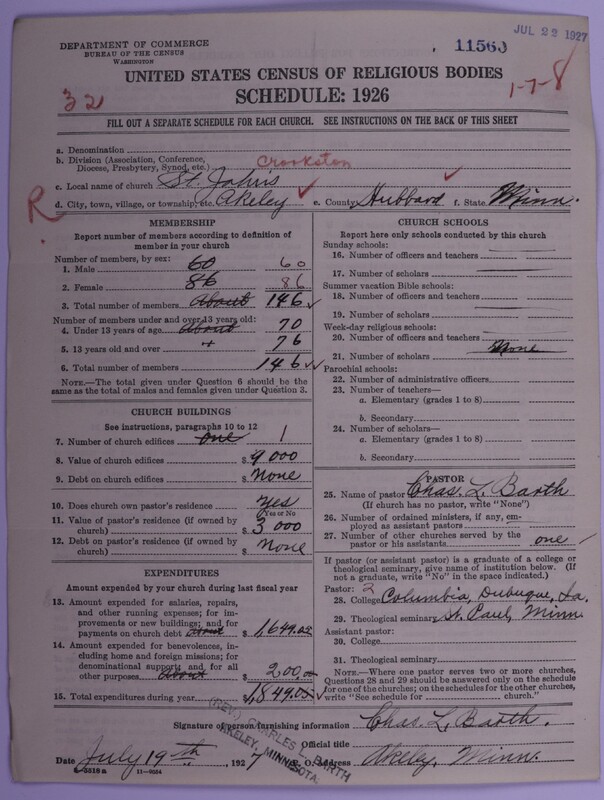 JUL 22 1927
DEPARTMENT OF COMMERCE
BUREAU OF THE CENSUS
WASHINGTON
UNITED STATES CENSUS OF RELIGIOUS BODIES
SCHEDULE: 1926
32
1-7-8
FILL OUT A SEPARATE SCHEDULE FOR EACH CHURCH. SEE INSTRUCTIONS ON THE BACK OF THIS SHEET
a. Denomination
b. Division (Association, Conference,
Diocese, Presbytery, Synod, etc.) Crookston
c. Local name of church St. John's
R. d. City, town, village, or township, etc. Akeley e. County Hubbard f. State Minn.
MEMBERSHIP
Report number of members according to definition of
member in your church
Number of members, by sex:
1. Male 60 60
2. Female 86 86
3. Total number of members About 146
Number of members under and over 13 years old:
4. Under 13 years of age About 70
5. 13 years old and over " 76
6. Total number of members 146
NOTE.—The total given under Question 6 should be the
same as the total of males and females given under Question 3.
CHURCH BUILDINGS
See instructions, paragraphs 10 to 12
7. Number of church edifices one 1
8. Value of church edifices $ 9000
9. Debt on church edifices $ None
10. Does church own pastor's residence Yes
(Yes or No)
11. Value of pastor's residence (if owned by
church) $ 3000
12. Debt on pastor's residence (if owned by
church) $ None
EXPENDITURES
Amount expended by your church during last fiscal year
13. Amount expended for salaries, repairs,
and other running expenses; for im-
provements or new buildings; and for
payments on church debt about $ 1,649.05
14. Amount expended for benevolences, in-
cluding home and foreign missions; for
denominational support; and for all
other purposes About $ 200.00
15. Total expenditures during year $ 1,849.05
CHURCH SCHOOLS
Report here only schools conducted by this church
Sunday schools:
16. Number of officers and teachers
17. Number of scholars
Summer vacation Bible schools:
18. Number of officers and teachers
19. Number of scholars
Week-day religious schools:
20. Number of officers and teachers
21. Number of scholars None
Parochial schools:
22. Number of administrative officers
23. Number of teachers—
a. Elementary (grades 1 to 8)
b. Secondary
24. Number of scholars—
a. Elementary (grades 1 to 8)
b. Secondary
PASTOR
25. Name of pastor Chas. L. Barth
(If church has no pastor, write "None")
26. Number of ordained ministers, if any, em-
ployed as assistant pastors
27. Number of other churches served by the
pastor or his assistants one
If pastor (or assistant pastor) is a graduate of a college or
theological seminary, give name of institution below. (If
not a graduate, write "No" in the space indicated.)
Pastor: 2
28. College Columbia, Dubuque, Ia.
29. Theological seminary St. Paul, Minn.
Assistant pastor:
30. College
31. Theological seminary
NOTE.—Where one pastor serves two or more churches,
Questions 28 and 29 should be answered only on the schedule
for one of the churches; on the schedules for the other churches,
write "See schedule for church."
Signature of person furnishing information Chas. L. Barth.
Official title
Date July 19th, 1927 P. O. Address Akeley, Minn.
(REV.) CHARLES L. BARTH
AKELEY, MINNESOTA.
8-5518a 11-9034